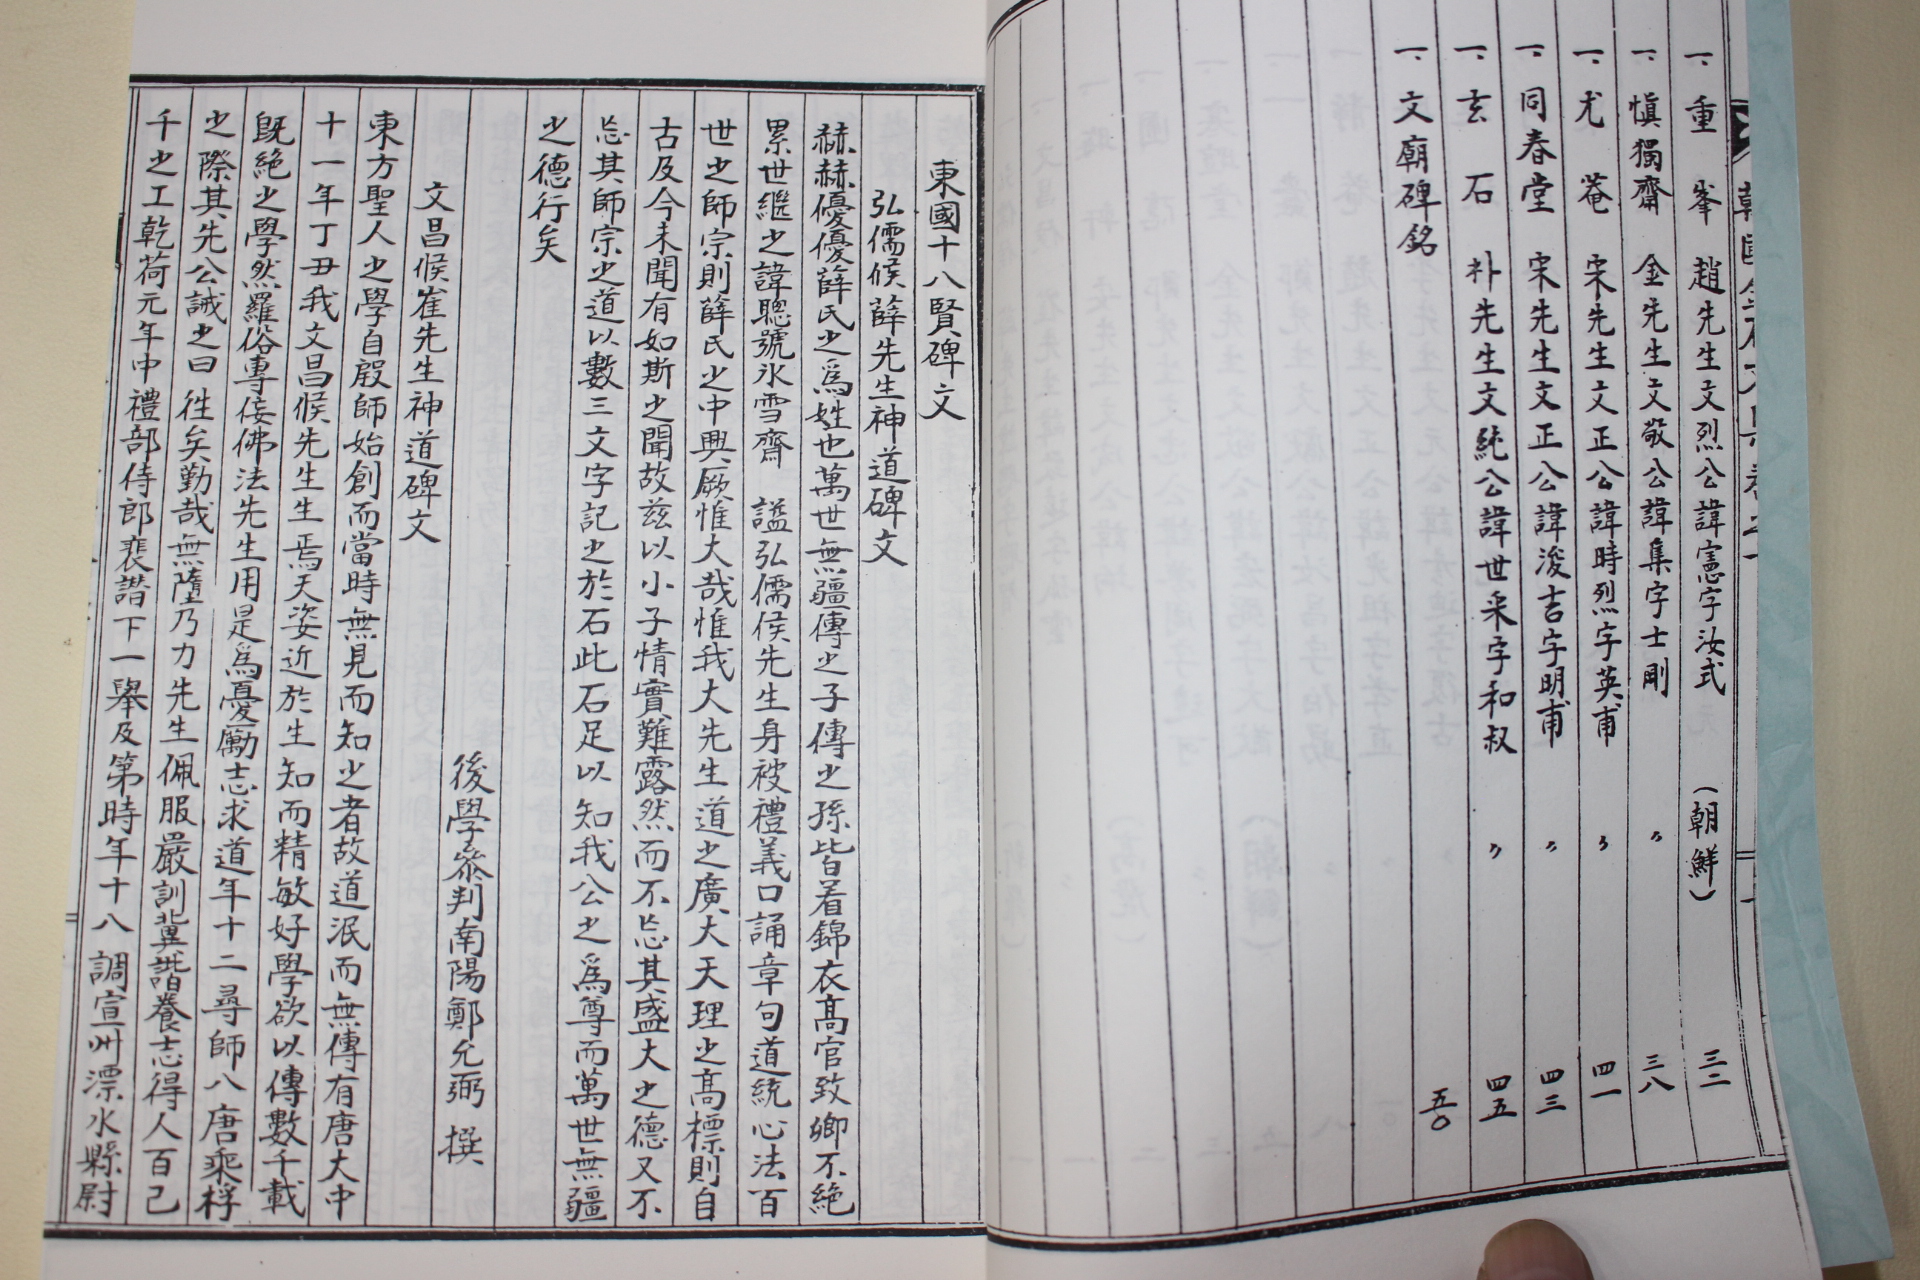 一、重峯 趙先生文烈公諱憲字汝式 (朝鮮) 三二
一、愼獨齋 金先生文敬公諱集字士剛 〃 三八
一、尤菴 宋先生文正公諱時烈字英甫 〃 四一
一、同春堂 宋先生文正公諱浚吉字明甫 〃 四三
一、玄石 朴先生文純公諱世采字和叔 〃 四五
一、文廟碑銘 五〇
東國十八賢碑文
弘儒侯薛先生神道碑文
赫赫優優薛氏之爲姓也萬世無疆傳之子傳之孫皆着錦衣高官致卿不絶
累世継之諱聰號氷雪齋 謚弘儒侯先生身被禮義口誦章句道統心法百
世之師宗則薛氏之中興厥惟大哉惟我大先生道之廣大天理之高標則自
古及今未聞有如斯之聞故茲以小子情實難露然而不忘其盛大之德又不
忘其師宗之道以數三文字記之於石此石足以知我公之爲尊而萬世無疆
之德行矣
後學叅判南陽鄭允弼 撰
文昌候崔先生神道碑文
東方聖人之學自殷師始創而當時無見而知之者故道泯而無傳有唐大中
十一年丁丑我文昌候先生生焉天姿近於生知而精敏好學欲以傳數千載
旣絶之學然羅俗專侫佛法先生用是爲憂勵志求道年十二尋師八唐乘桴
之際其先公誡之曰 徃矣勤哉無墮乃力先生佩服嚴訓冀諧養志得人百己
千之工乾荷元年中禮部侍郎裵譛下一擧及第時年十八調宣州漂水縣尉